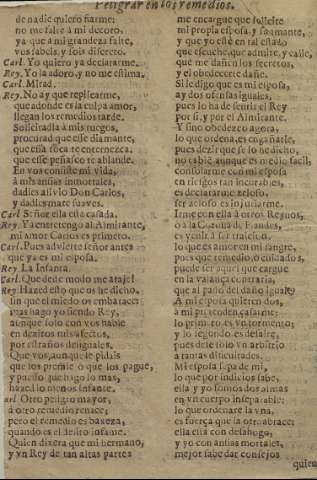 Peligrar en los remedios.
de nadie quiero fiarme:
no me falte a mi decoro,
ya que a mi grandeza falte,
vos sabeis, y sois discreto.
Carl. Yo quiero ya declararme.
Rey. Yo la adoro, y no me estima.
Carl. Mirad.
Rey. No ay que replicarme,
que adonde es la culpa amor,
llegan los remedios tarde.
Solicitadla a mis ruegos,
procurad que esse diamante,
que essa roca se enternezca,
que esse peñasco se ablande.
En vos consiste mi vida,
a mis ansias inmortales,
dadles alivio Don Carlos,
y dadles muerte suaves.
Carl. Señor ella està casada.
Rey. Ya entretengo al Almirante,
mi amor Carlos es primero.
Carl. Pues advierte señor antes
que ya es mi esposa.
Rey. La Infanta.
Carl. Que deste modo me ataje!
Rey. Hazed esto que os he dicho,
sin que el miedo os embarace:
mas hago yo siendo Rey,
aunque solo con vos hable
en deziros mis afectos,
por estraños desiguales.
Que vos, aunque le pidais
que los premie o que los pague,
y puesto que hago lo mas,
hazed lo menos Infante.
Carl. Otro peligro mayor,
à otro remedio renace;
pero el remedio es baxeza,
quando es el delito infame.
Quien dixera que mi hermano,
y vn Rey de tan altas partes
me encargue que solicite
mi propia esposa, y su amante,
y que yo estè en tal estado
que escuche, que admire, y calle,
que me dañen los secretos,
y el obedecerle dañe.
Si le digo que es mi esposa,
ay dos ofensas iguales,
pues lo ha de sentir el Rey
por si, y por el Almirante.
Y sino obedezco agora,
lo que ordena, es engañarle,
pues dezir que se lo he dicho,
no cabe, aunque es medio facil,
consolarme con mi esposa
en riesgos tan incurables,
es declararme zeloso,
ser zeloso es injuriarme.
Irme con ella à otros Reynos,
ò a la Corona de Flandes,
es venir à ser traicion,
lo que es amor en mi sangre,
pues que remedio, ò cuidados,
puede ser aquel que cargue
en la valança contraria,
que al passo del daño iguale?
A mi esposa quieren dos,
à mi pretenden casarme:
lo primero es vn tormento;
y lo segundo es desaire,
pues dexè solo vn arbitrio
a tantas dificultades.
Mi esposa sepa de mi,
lo que por indicios sabe,
ella y yo somos dos almas
en vn cuerpo inseparable:
lo que ordenare la vna,
es fuerça que la otra abrace:
ella està con desahogo,
y yo con ansias mortales,
mejor sabe dar consejos
quien